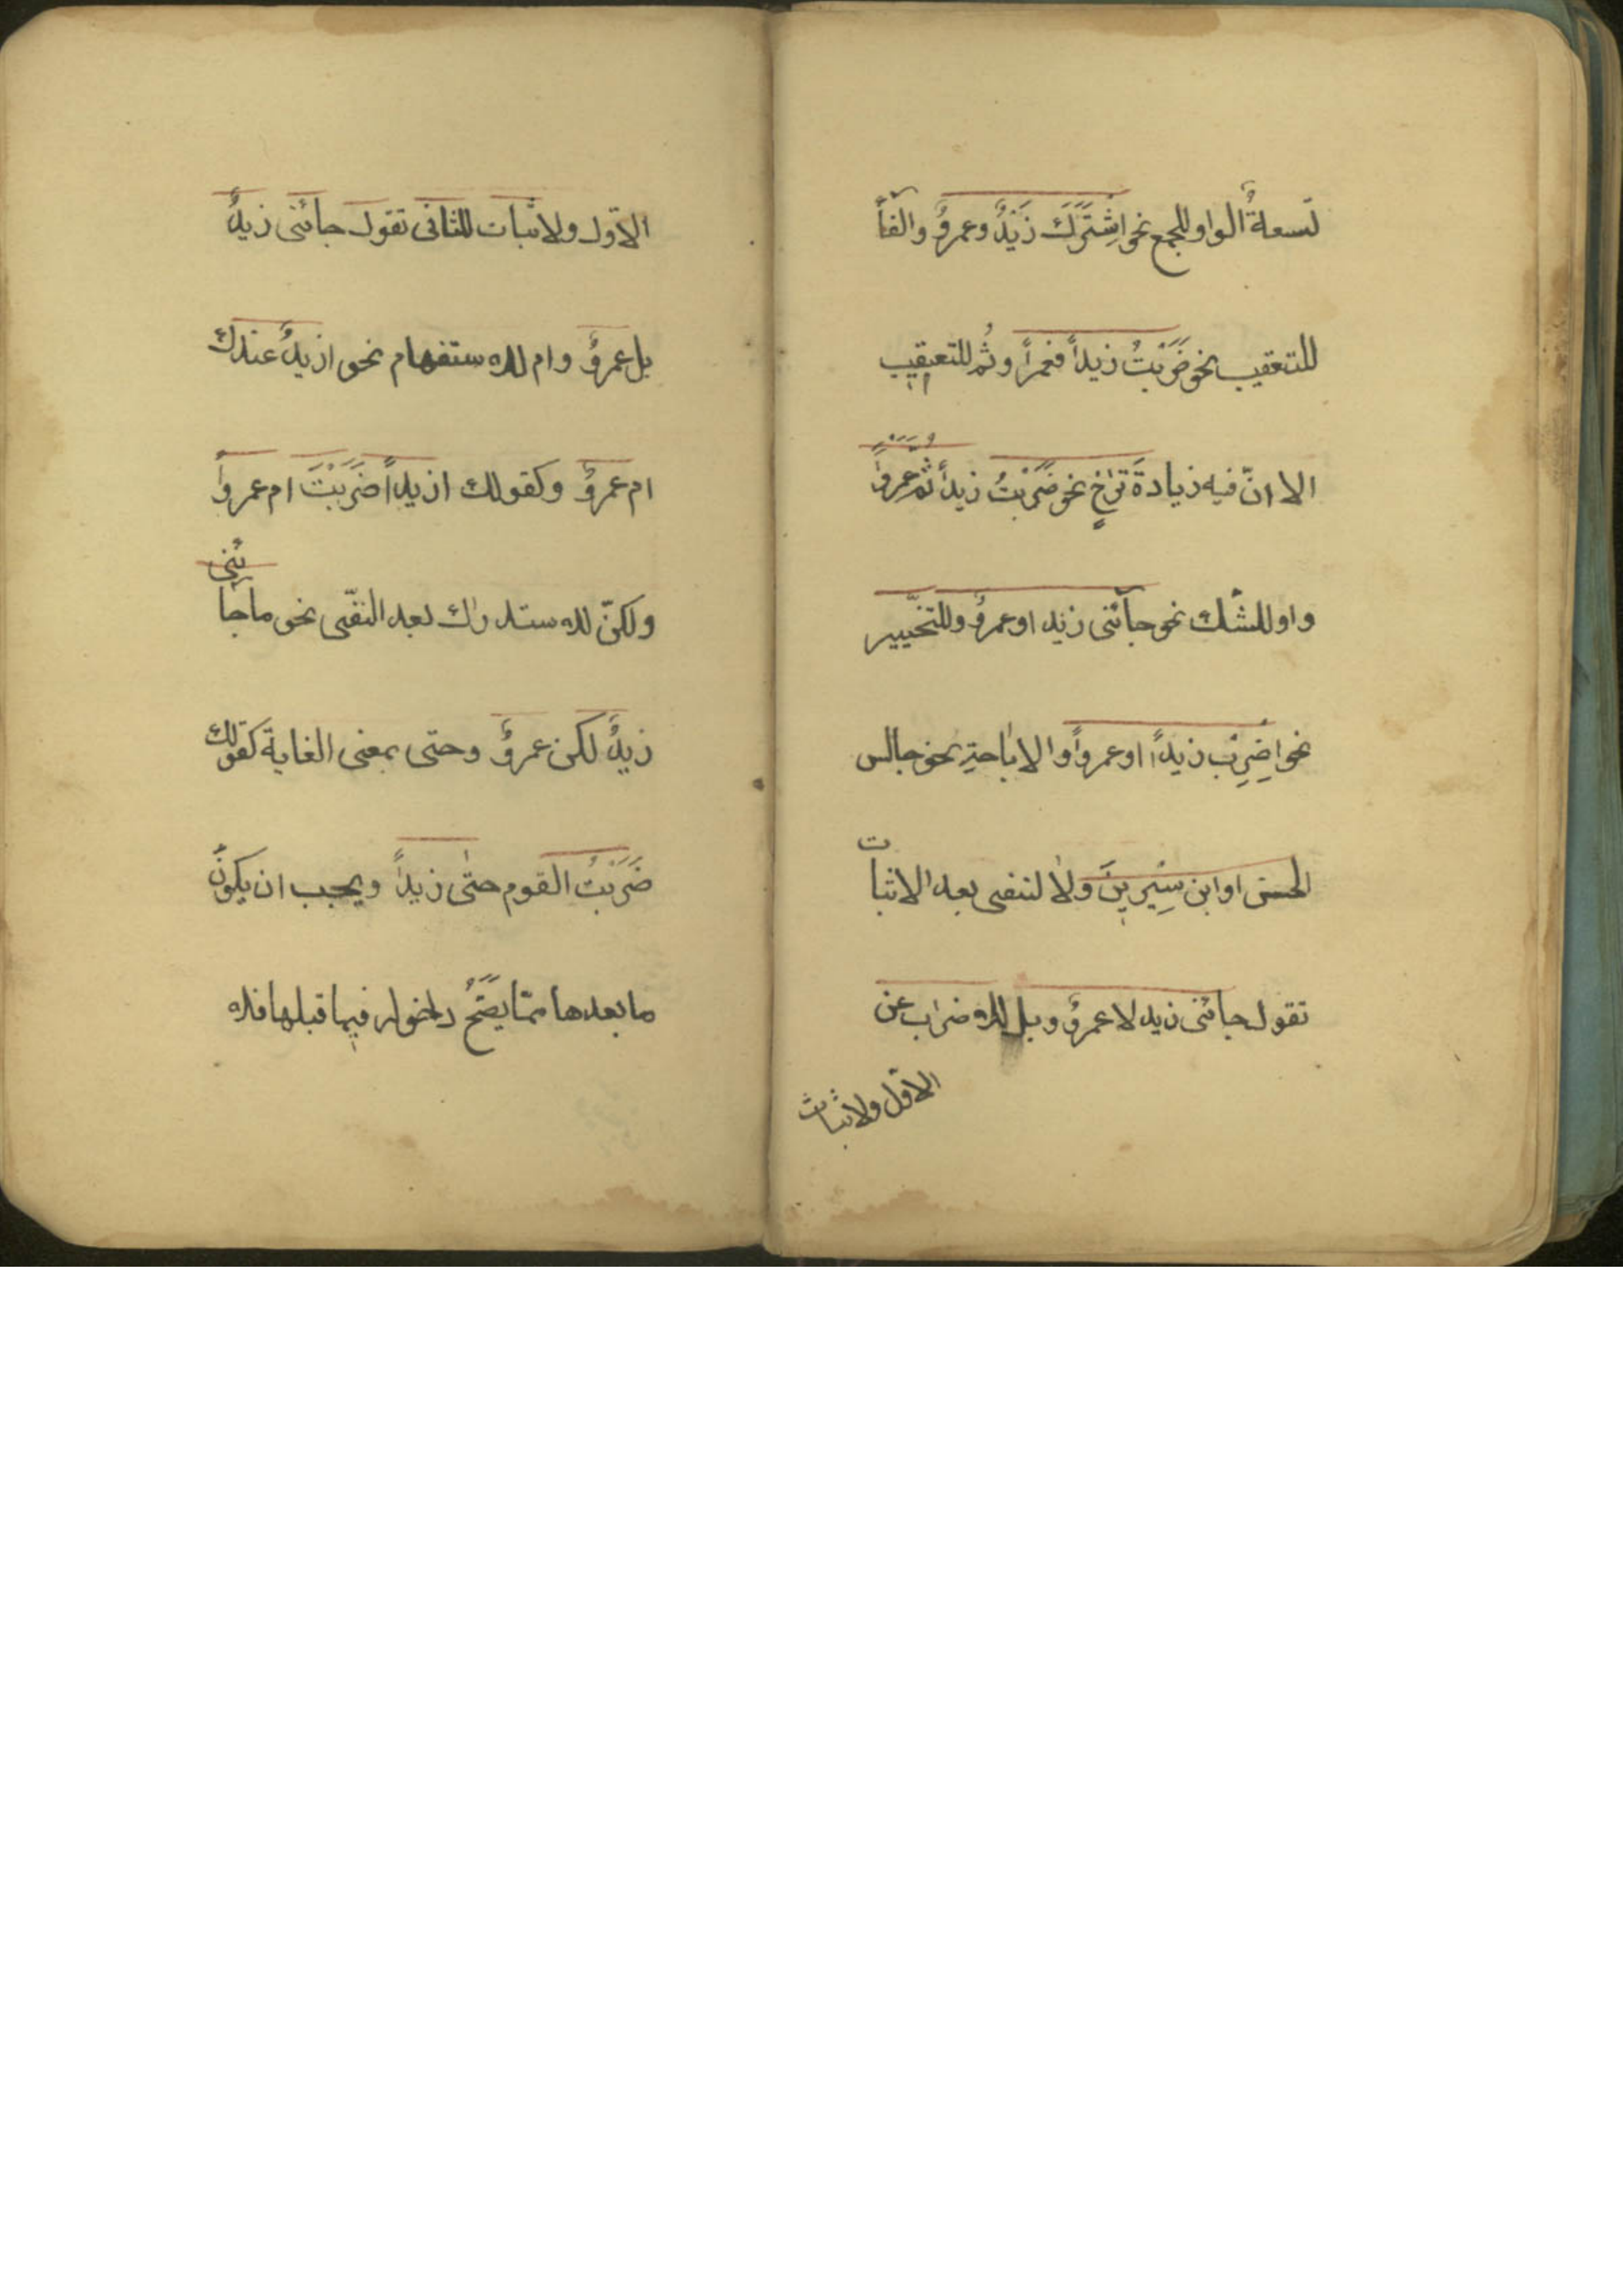 لتسعةٌ الواو للجمع نحو اشْتَرَكَ زَيْدٌ وعمروٌ والفآ
للتعقيب نحو ضَرَبْتُ زيداً فعمراً وثُم للتعقيب
الا انّ فيه زيادةَ تراخٍ نحو ضَرَبْتُ زيداً ثُمَّ عَمْرواً
واو للشك نحو جآئنى زيد او عمروٌ وللتخيير
نحو اِضرِبْ زيداً او عمرواً والاباحةِ نحو جالس
الحسن او ابن سِيْرِينَ ولا لنفى بعد الاثبات
تقول جائنى زيد لا عمروٌ وبل للاضراب عن
الاوّل ولاثبات
الاوّل ولاثبات للثانى تقول جائنى زيدٌ
بل عمروٌ وام للاستفهام نحو ازيدٌ عندك
ام عمروٌ وكقولك ازيداً ضَرَبْتَ ام عمرواً
ولكنّ للاستدراك بعد النفى نحو ماجائنى
زيدٌ لكن عمروٌ وحتى بمعنى الغاية كقولك
ضَرَبْتُ القوم حتى زيداً ويجب ان يكونَ
مابعدها ممّا يَصَحُّ دخوله فيما قبلها فلا